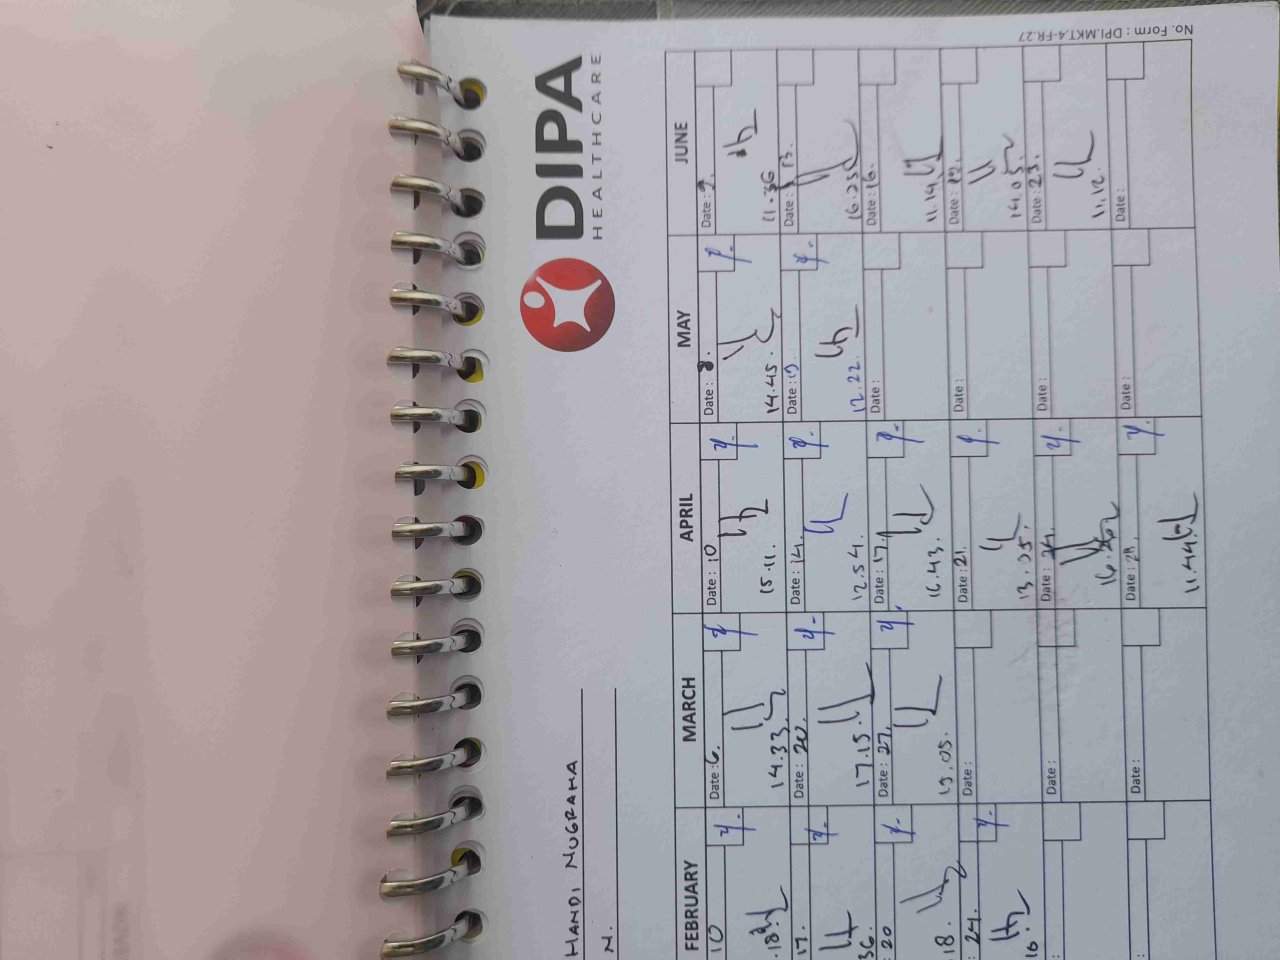 DIPA
HEALTHCARE
HANDI NUGRAHA
N.
No. Form : DPI.MKT.4-FR.27
FEBRUARY
MARCH
APRIL
MAY
JUNE
10
Date : 6.
Date : 10
Date : 8.
Date : 9.
.18
14.33
15.11.
14.45.
11.36
17.
Date : 20.
Date : 14.
Date : 19
Date : 13.
36
17.15.
12.54.
12.22.
16.25
: 20
Date : 27.
Date : 17.
Date :
Date : 16.
18.
13.05.
16.43.
11.14
: 24.
Date :
Date : 21.
Date :
Date : 19.
16
13.05.
14.05
:
Date :
Date : 24.
Date :
Date : 23.
16.26
11.12.
:
Date :
Date : 28.
Date :
Date :
11.44